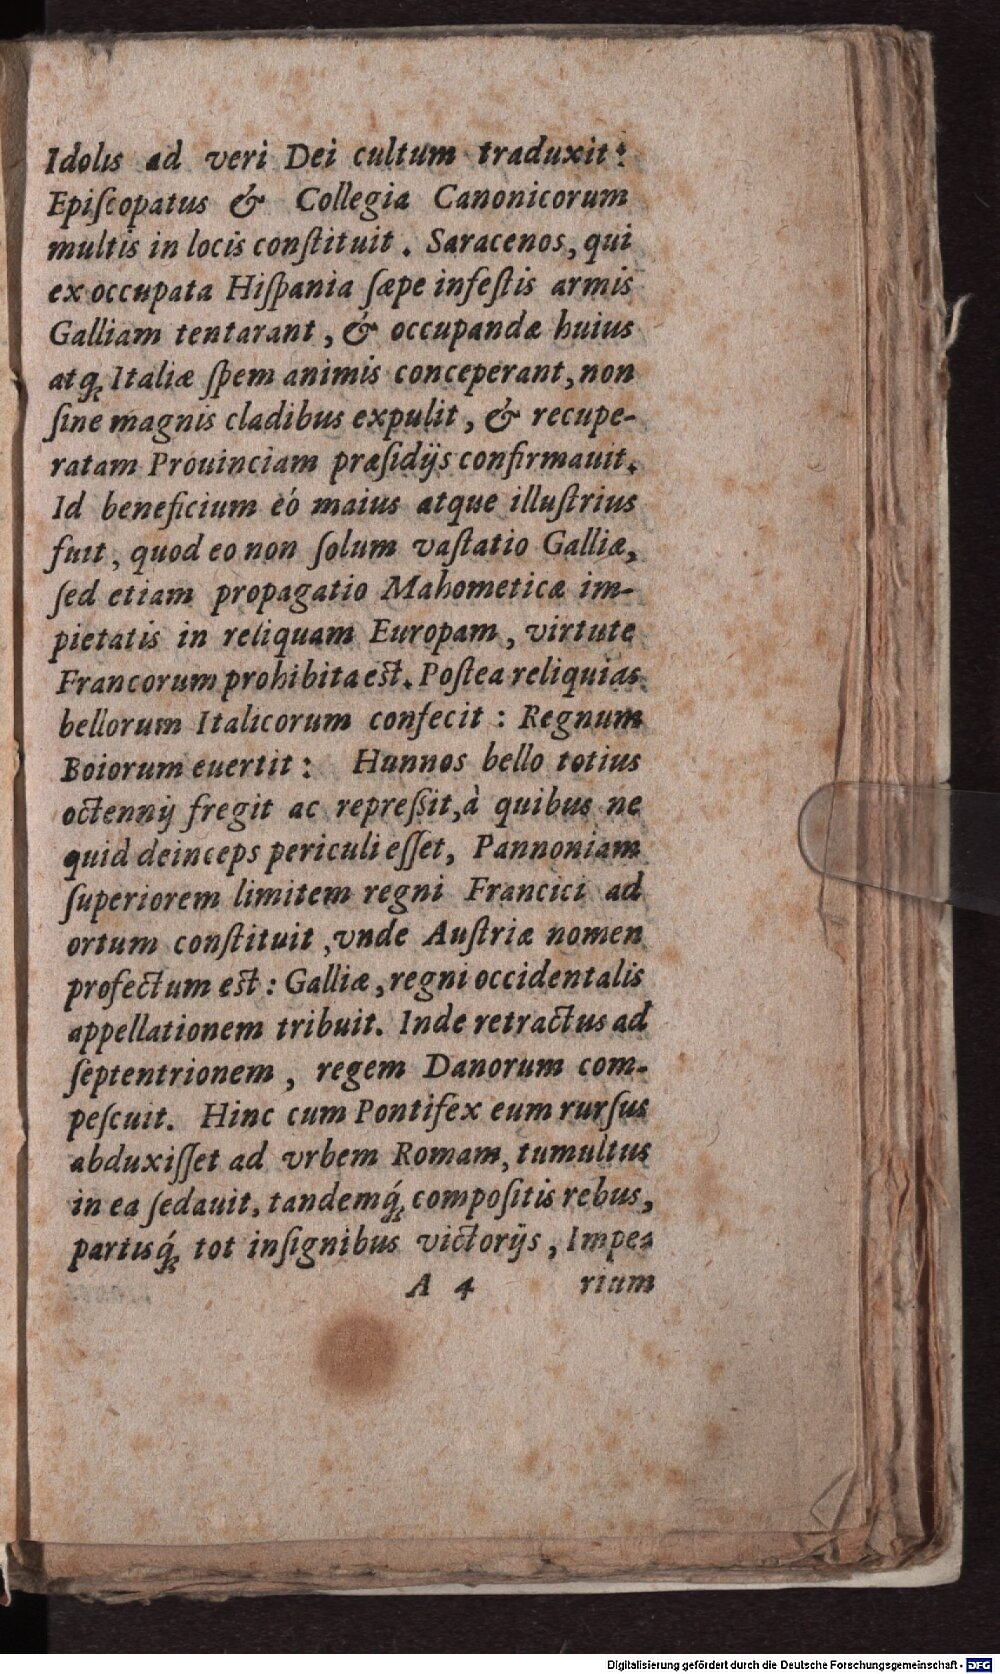 Idolis ad veri Dei cultum traduxit:
Epiſcopatus & Collegia Canonicorum
multis in locis conſtituit. Saracenos, qui
ex occupata Hiſpania ſæpe infeſtis armis
Galliam tentarant, & occupandæ huius
atq; Italiæ ſpem animis conceperant, non
ſine magnis cladibus expulit, & recupe-
ratam Prouinciam præſidijs confirmauit.
Id beneficium eó maius atque illuſtrius
fuit, quod eo non ſolum vaſtatio Galliæ,
ſed etiam propagatio Mahometicæ im-
pietatis in reliquam Europam, virtute
Francorum prohibita est. Poſtea reliquias
bellorum Italicorum confecit: Regnum
Boiorum euertit: Hunnos bello totius
octennij fregit ac repreſsit, à quibus ne
quid deinceps periculi eſſet, Pannoniam
ſuperiorem limitem regni Francici ad
ortum conſtituit, vnde Auſtriæ nomen
profectum est: Galliæ, regni occidentalis
appellationem tribuit. Inde retractus ad
ſeptentrionem, regem Danorum com-
peſcuit. Hinc cum Pontifex eum rurſus
abduxiſſet ad vrbem Romam, tumultus
in ea ſedauit, tandemq́; compoſitis rebus,
partisq́; tot inſignibus victorijs, Impe-
A 4 rium
Digitalisierung gefördert durch die Deutsche Forschungsgemeinschaft - DFG